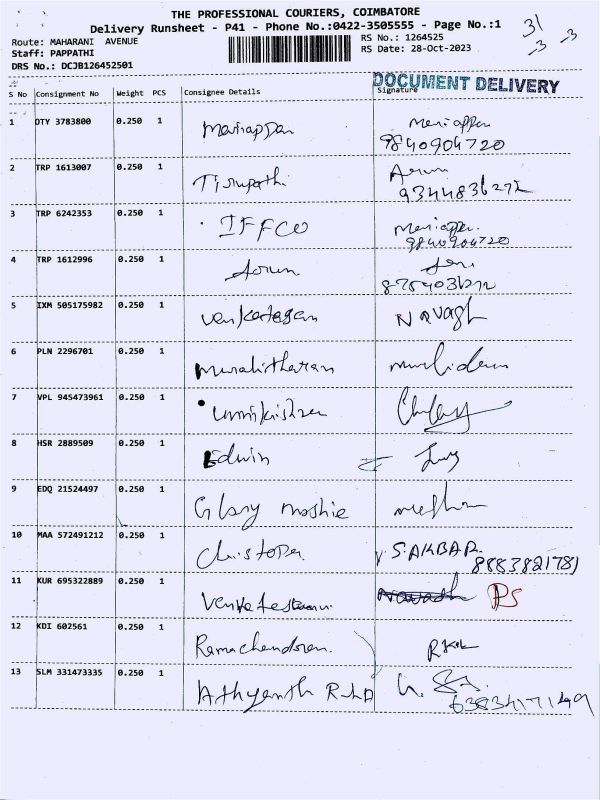 THE PROFESSIONAL COURIERS, COIMBATORE
Delivery Runsheet - P41 - Phone No.:0422-3505555 - Page No.:1
31
-3 -3
Route: MAHARANI AVENUE
RS No.: 1264525
Staff: PAPPATHI
RS Date: 28-Oct-2023
DRS No.: DCJB126452501
DOCUMENT DELIVERY
S No Consignment No Weight PCS Consignee Details Signature
1 DTY 3783800 0.250 1 Mariappan Mariappan
9840904720
2 TRP 1613007 0.250 1 Tirupathi Arun
3 TRP 6242353 0.250 1 IFFCO Mariappan
9840904720
4 TRP 1612996 0.250 1 Arun
5 IXM 505175982 0.250 1 Venkatesan
6 PLN 2296701 0.250 1 Muralitharan
7 VPL 945473961 0.250 1 Unnikrishnan
8 HSR 2889509 0.250 1 Edwin
9 EDQ 21524497 0.250 1 Glary Moshie
10 MAA 572491212 0.250 1 S. AKBAR
8883821781
11 KUR 695322889 0.250 1 PS
12 KDI 602561 0.250 1 Ramachandran
13 SLM 331473335 0.250 1